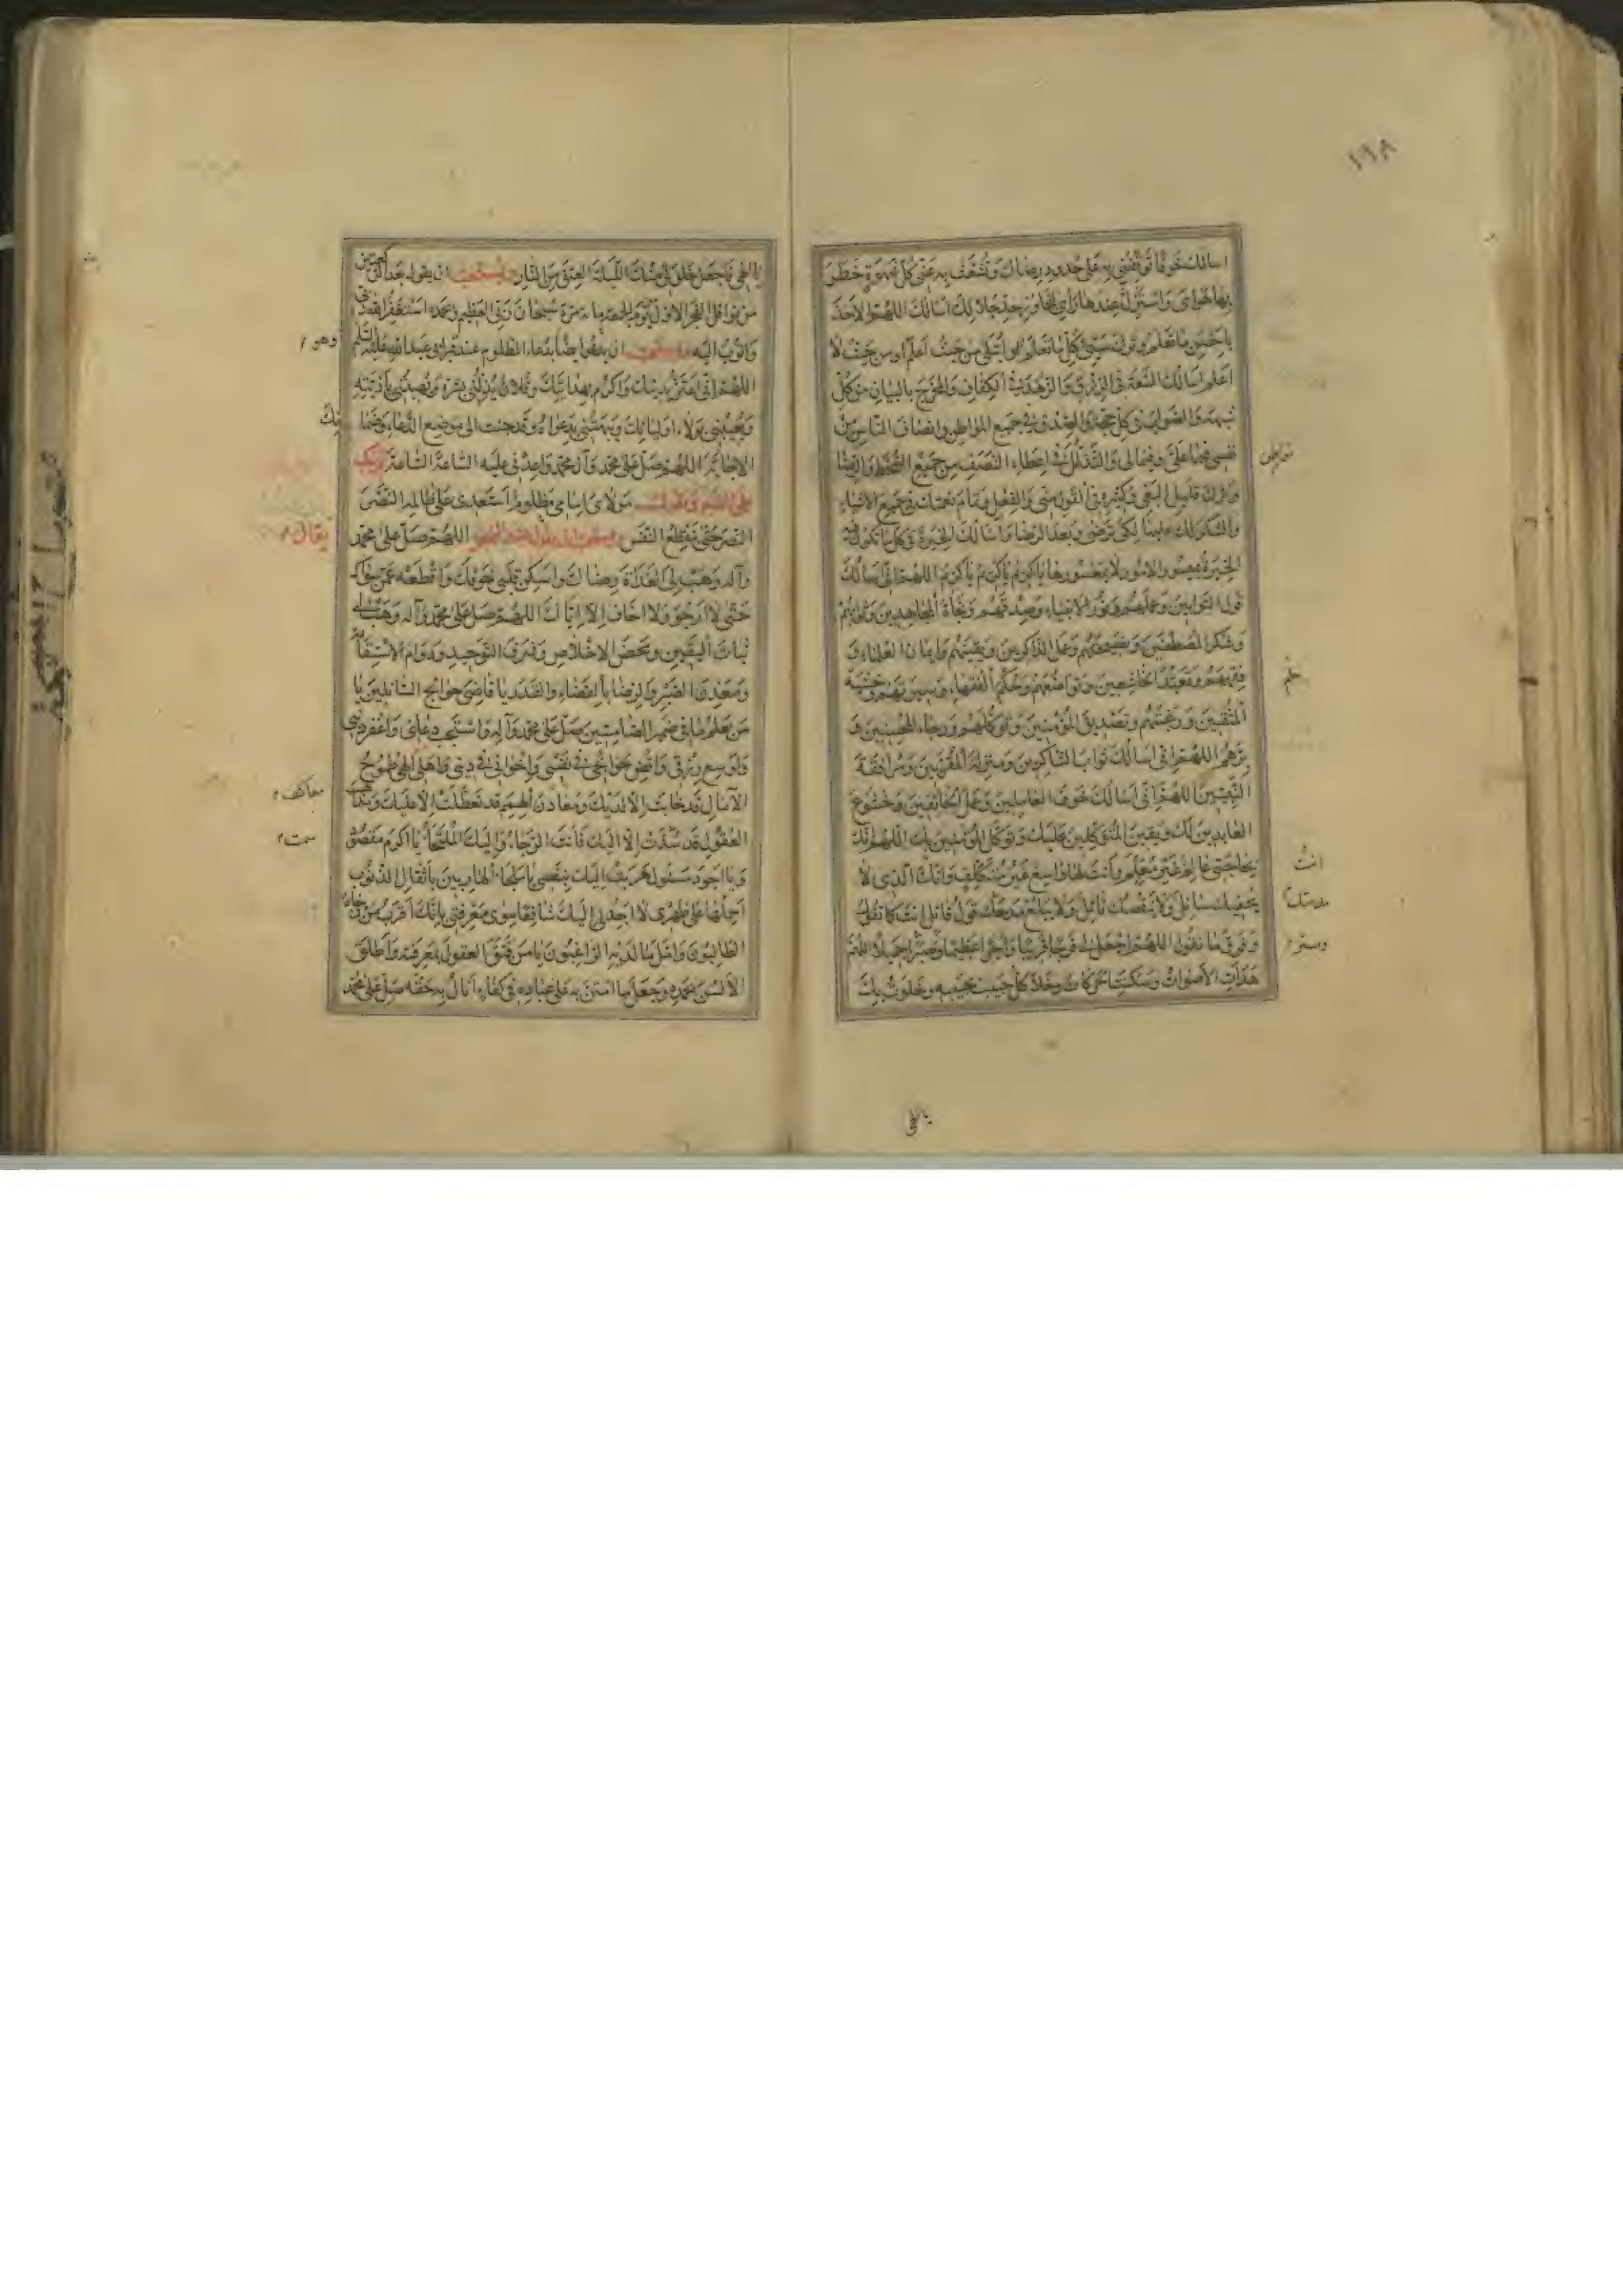 ١٩٨
اسالك خوفا توقفني به على حدود رضاك وتشعف به عني كل شهوة خطر
بها هواى واستزل عندها رأي لتجاوز حد حلالك اسالك اللهم الاخذ
باحسن ما تعلم وترك سيئ كل ما تعلم او ابتلى من حيث اعلم او من حيث لا
اعلم اسالك السعة فى الرزق والزهد فى الكفاف والمخرج بالبيان من كل
شبهة والصواب فى كل حجة والصدق فى جميع المواطن وانصاف الناس من
نفسي فيما علي وفيما لي والتذلل فى اعطاء النصف من جميع السخط والرضا
وترك قليل البغي وكثيره في القول مني والفعل وتمام نعمتك فى جميع الاشياء
والشكر لك عليها لكي ترضى وبعد الرضا واسالك الخيرة فى كل ما تكون فيه
الخيرة بميسور الامور لا بمعسورها يا كريم يا كريم يا كريم اللهم اني اسالك
قول التوابين وعملهم ونور الانبياء وصدقهم ونجاة المجاهدين وثوابهم
وشكر المصطفين ونصيحتهم وعمل الذاكرين ويقينهم وايمان العلماء و
فقههم وتعبد الخاشعين وتواضعهم وحكم الفقهاء وسيرتهم وخشية
المتقين ورغبتهم وتصديق المؤمنين وتوكلهم ورجاء المحسنين و
برهم اللهم اني اسالك ثواب الشاكرين ومنزلة المقربين ومرافقة
النبيين اللهم اني اسالك خوف العاملين وعمل الخائفين وخشوع
العابدين لك ويقين المتوكلين عليك وتوكل المؤمنين بك اللهم انك
بحاجتي عالم غير معلم وانت لها واسع غير متكلف وانك الذى لا
يحفيك سائل ولا ينقصك نائل ولا يبلغ مدحك قول قائل انت كما تقول
وفوق ما نقول اللهم اجعل لي فرجا قريبا واجرا عظيما وسترا جميلا اللهم
هدأت الاصوات وسكنت الحركات وخلا كل حبيب بحبيبه وخلوت بك
انت
يا الهي
يا الهي فاجعل خلوتي منك الليلة العتق من النار ويستحب ان يقول بعد الركعتين
من نوافل الفجر الاول يوم الجمعة مائة مرة سبحان ربي العظيم وبحمده استغفر الله ربي
واتوب اليه ويستحب ان يدعوا ايضا بدعاء المظلوم عند قبر ابي عبد الله عليه السلم
وهو
اللهم اني اعتز بدينك واكرم بهدايتك وفلان يذلني بشره ويهينني باذيته
ويعيبني بولاء اوليائك ويبهتني بدعواه وقد جئت الى موضع الدعاء وضمانك
الاجابة اللهم صل على محمد وآل محمد واعدني عليه الساعة الساعة وينكب
على القبر ويقول مولاى امامي مظلوم استعدى على ظالمه النصر
النصر حتى ينقطع النفس اللهم صل على محمد
يقال
وآله وهب لي الغداة رضاك واسكن قلبي خوفك واقطعه عمن سواك
حتى لا ارجو ولا اخاف الا اياك اللهم صل على محمد وآله وهب لي
ثبات اليقين ومحض الاخلاص وشرف التوحيد ودوام الاستقامة
ومعدن الصبر والرضا بالقضاء والقدر يا قاضي حوائج السائلين يا
من يعلم ما في ضمير الصامتين صل على محمد وآله واستجب دعائي واغفر ذنبي
واوسع رزقي واقض حوائجي فى نفسي واخواني فى ديني واهلي الهي طموح
الآمال قد خابت الا لديك ومعاكف الهمم قد تعطلت الا عليك ومذاهب
معاكف
العقول قد سدت الا اليك فانت الرجاء واليك الملتجأ يا اكرم مقصود
سمت
ويا اجود مسئول هربت اليك بنفسي يا ملجأ الهاربين باثقال الذنوب
احملها على ظهرى لا اجد لي اليك شافعا سوى معرفتي بانك اقرب من رجاه
الطالبون وامل ما لديه الراغبون يا من فتق العقول بمعرفته واطلق
الالسن بحمده وجعل ما امتن به على عباده فى كفاء انال به حقه صل على محمد